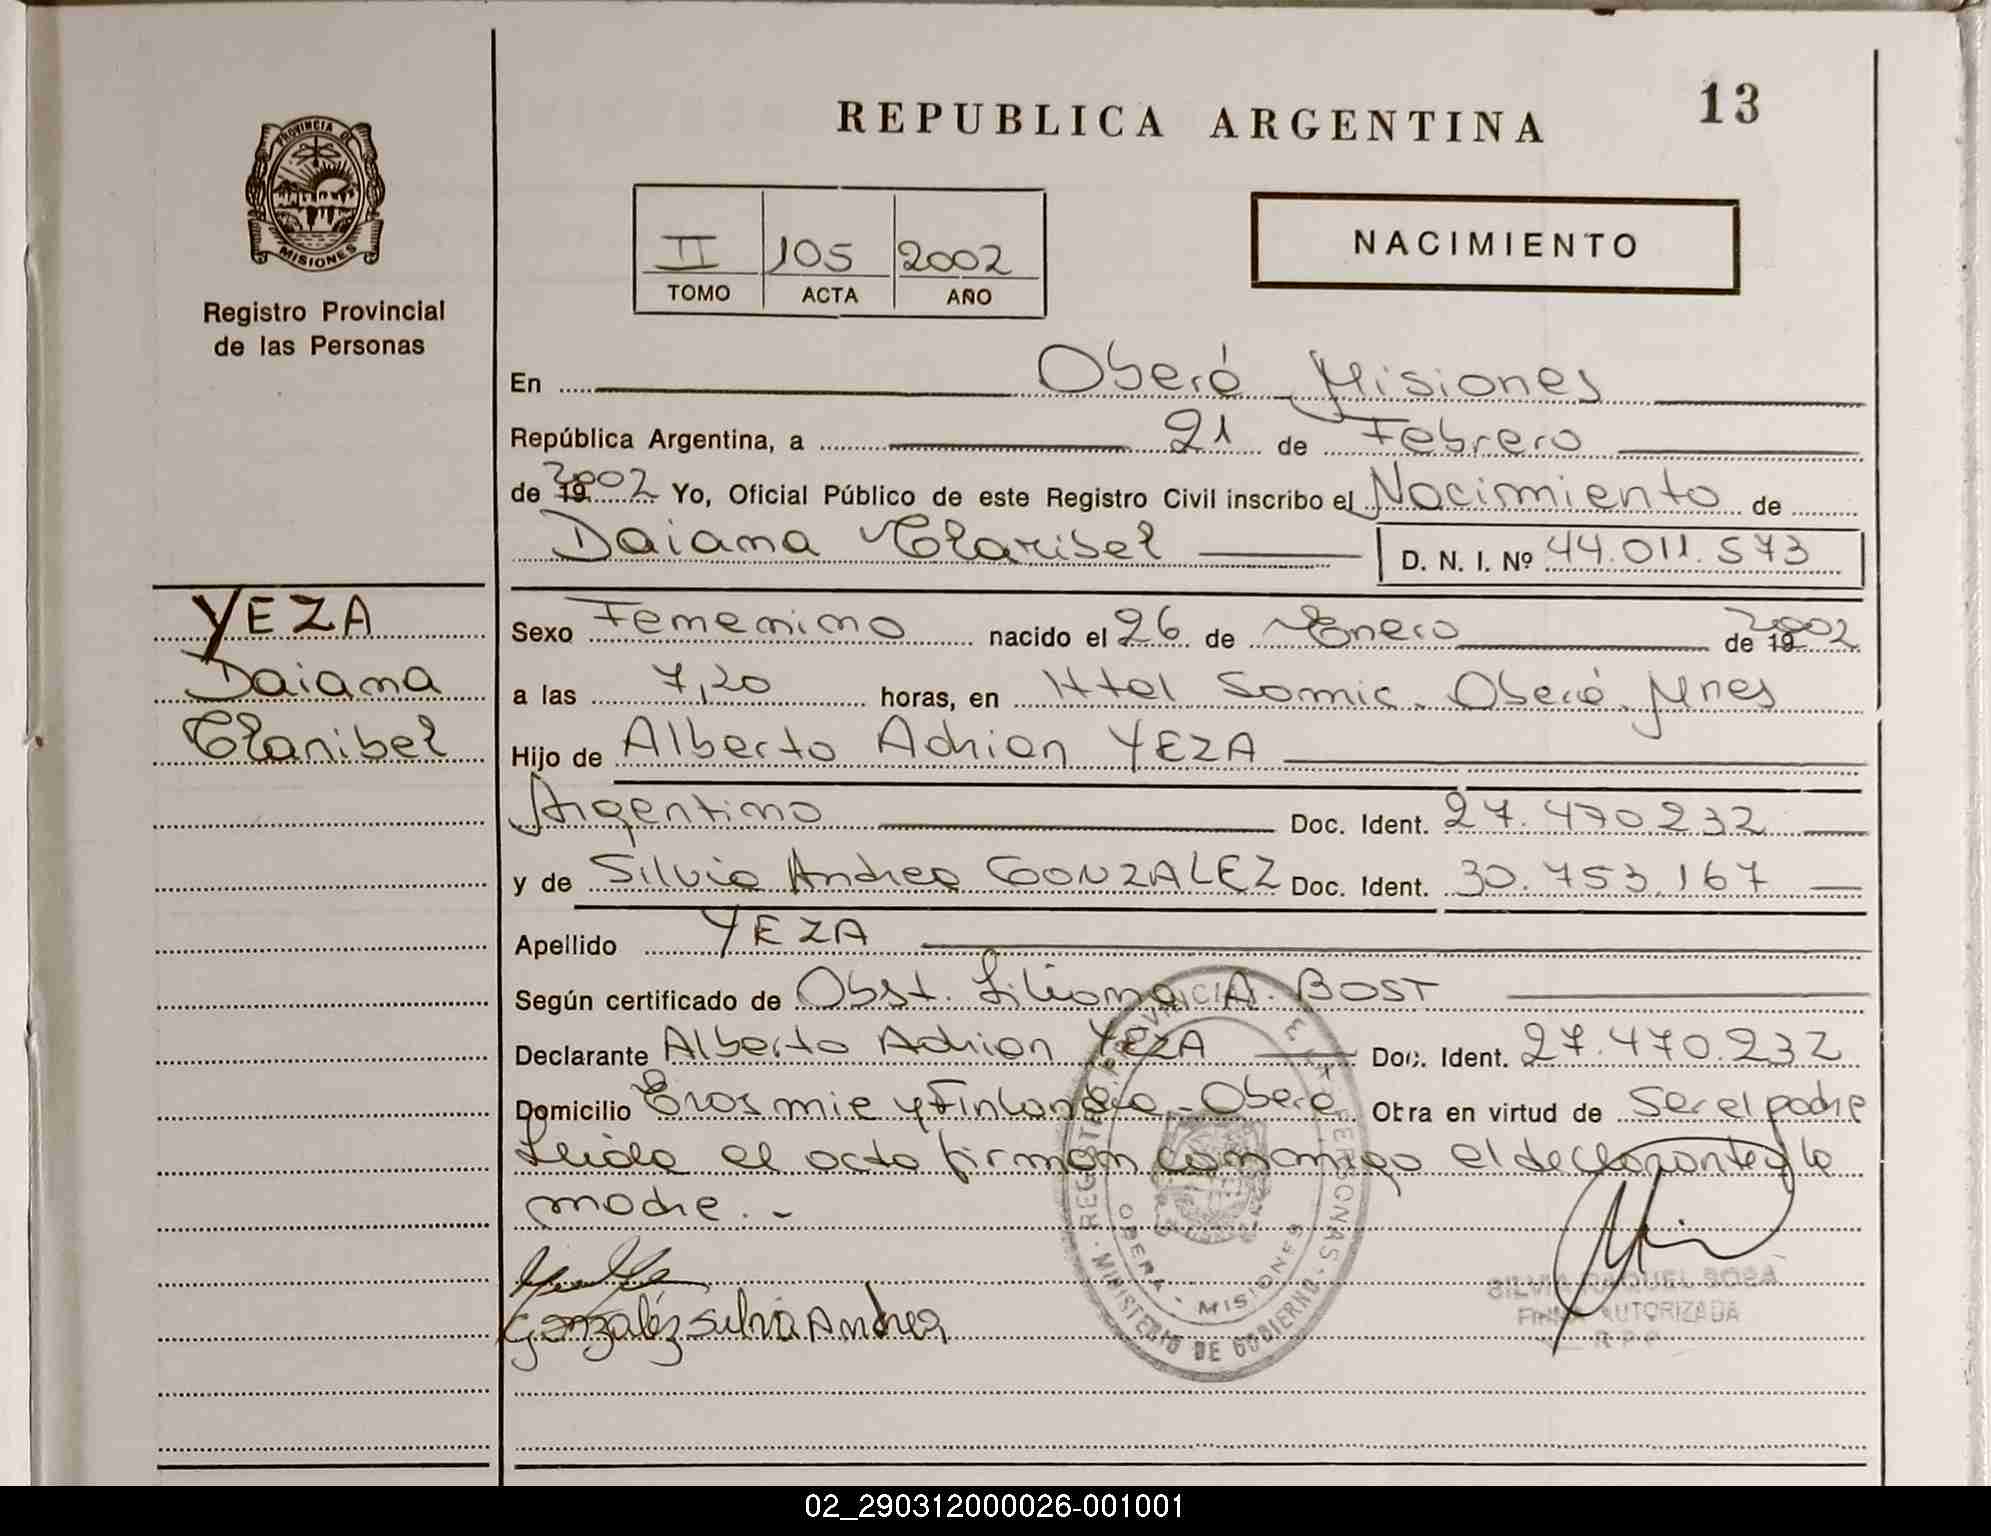 REPUBLICA ARGENTINA
13
PROVINCIA DE
MISIONES
Registro Provincial
de las Personas
II 105 2002
TOMO ACTA AÑO
NACIMIENTO
En Oberá Misiones
República Argentina, a 21 de Febrero
de 19 2002 Yo, Oficial Público de este Registro Civil inscribo el Nacimiento de
Daiana Claribel D. N. I. Nº 44.011.573
YEZA
Daiana
Claribel
Sexo Femenino nacido el 26 de Enero de 19 2002
a las 7,20 horas, en Htal Samic. Oberá. Mnes
Hijo de Alberto Adrian YEZA
Argentino Doc. Ident. 27.470232
y de Silvia Andrea GONZALEZ Doc. Ident. 30.753.167
Apellido YEZA
Según certificado de Obst. Liliana A. BOST
Declarante Alberto Adrian YEZA Doc. Ident. 27.470.232
Domicilio y Finlandia - Oberá Obra en virtud de ser el padre
Leida el acta firman conmigo el declarante y la
madre. -
González Silvia Andrea
REGISTRO PROVINCIAL DE LAS PERSONAS - MINISTERIO DE GOBIERNO
OBERA - MISIONES
SILVIA RAQUEL SOSA
FIRMA AUTORIZADA
R.P.P.
02_290312000026-001001